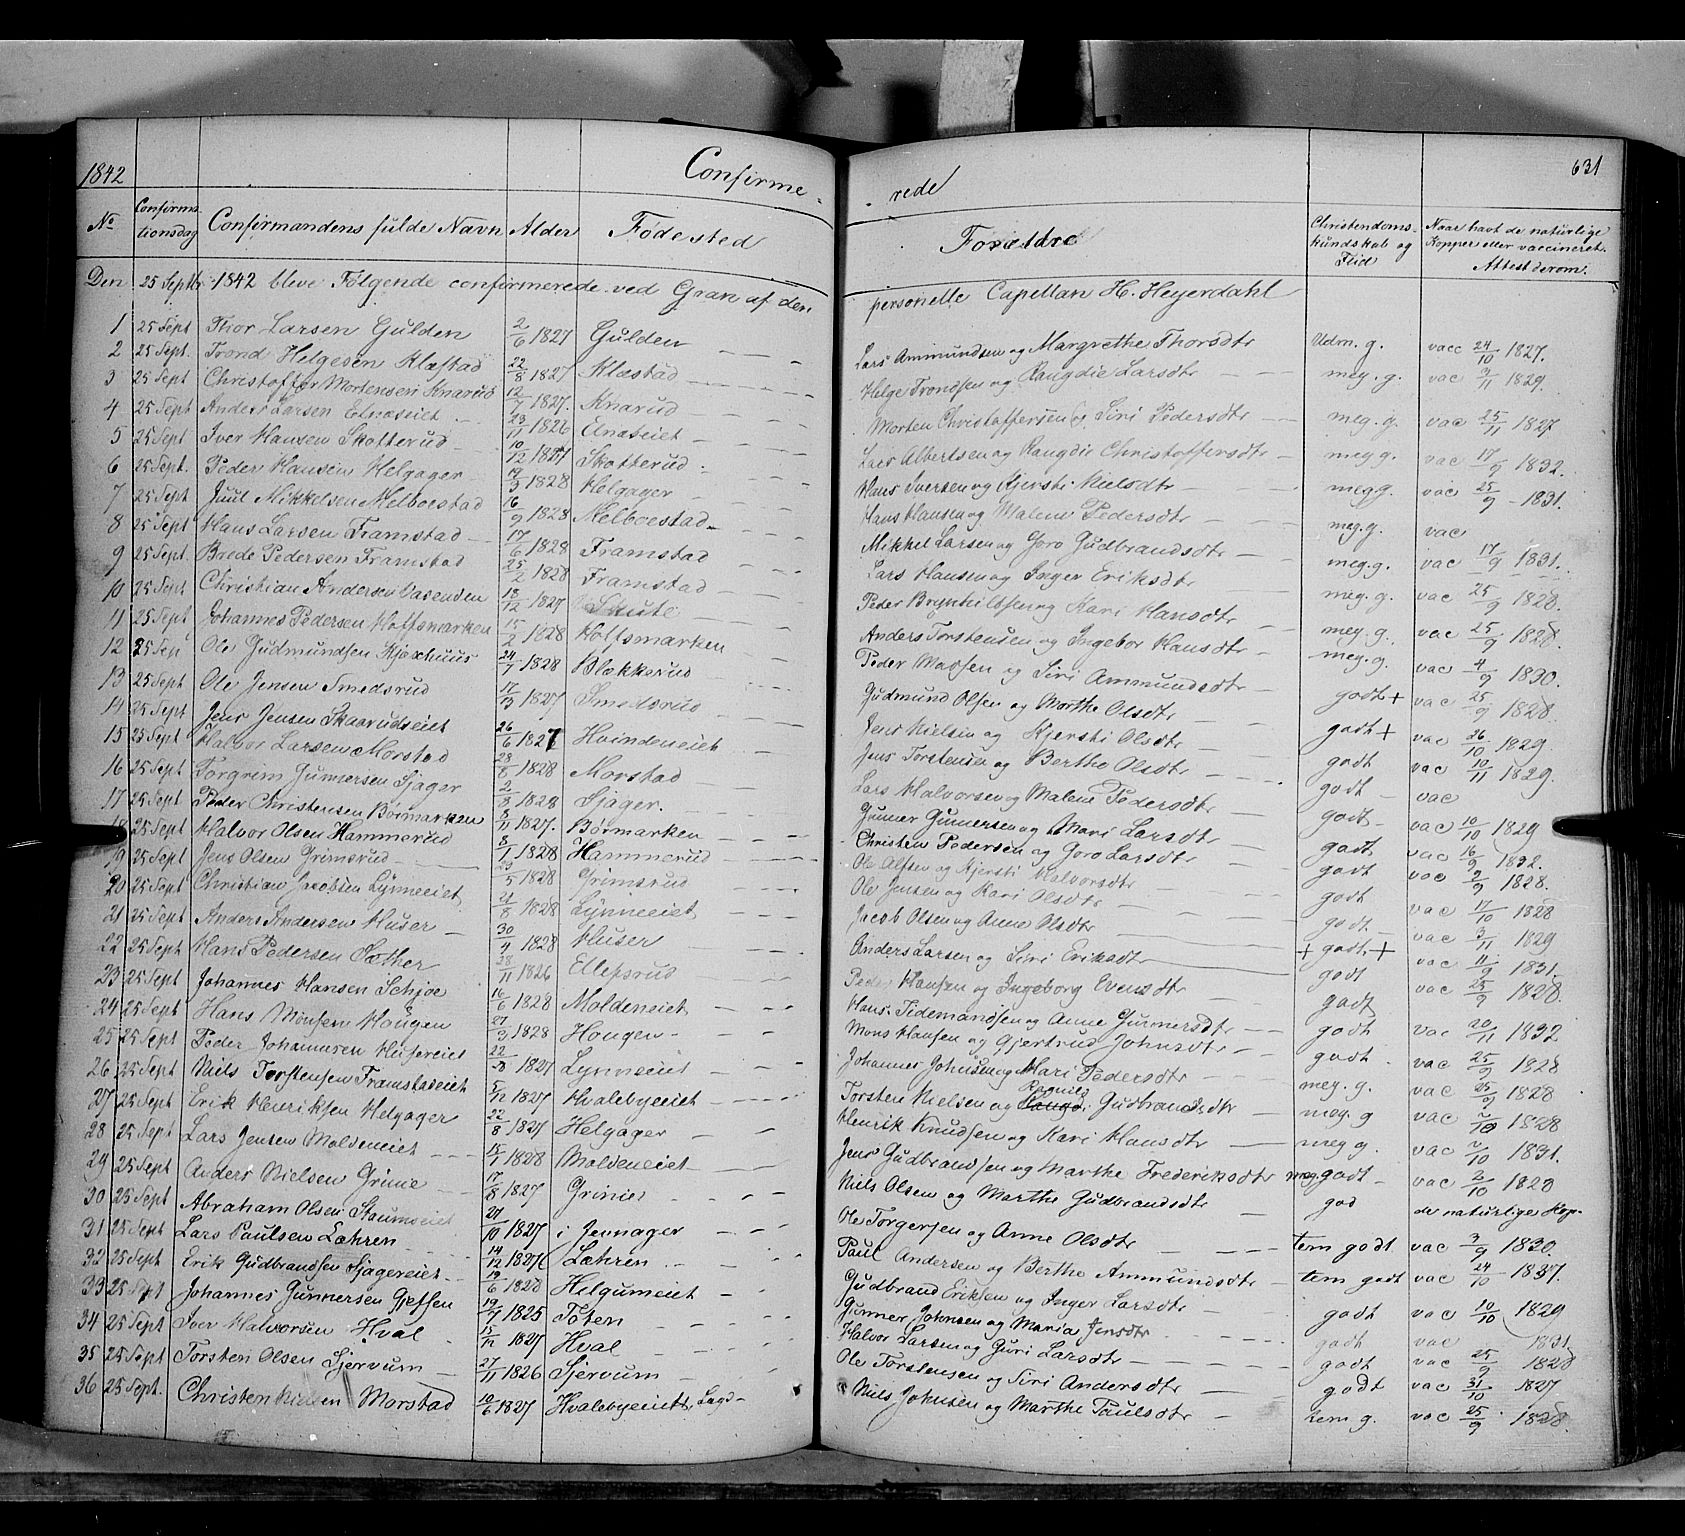 1842 Confirme- -rede 631
No Confirmationsdag Confirmandens fulde Navn Alder Fødested Forældre Christendoms-kundskab og Flid Naar havt de naturlige Kopper eller vaccineret. Attest derom.
Den 25 Septbr 1842 bleve Følgende confirmerede ved Gran af den personelle Capellan H. Heyerdahl
1 25 Sept Thor Larsen Gulden 2/6 1827 Gulden Lars Ammundsen og Margrethe Thorsdtr Udm. g. vacc 24/10 1827.
2 25 Sept. Trond Helgesen Klæstad 22/8 1827 Klæstad Helge Trondsen og Rangdie Larsdtr meg. g. vac 9/11 1829.
3 25 Sept Christoffer Mortensen Knarud 12/7 1827. Knarud Morten Christoffersen og Siri Pedersdtr meg. g. vac 25/11 1827
4 25 Sept Anders Larsen Elnæseiet 23/11 1826 Elnæseiet Lars Albertsen og Rangdie Christoffersdtr meg g. vac 17/9 1832.
5 25 Sept Iver Hansen Skotterud 10/12 1827 Skotterud Hans Iversen og Kjersti Nielsdtr meg g. vac 25/9 1831.
6 25 Sept. Peder Hansen Helgager 19/3 1828 Helgager Hans Hansen og Malene Pedersdtr meg. g. vac
7 25 Sept Juul Mikkelsen Melboestad 16/9 1828 Melboestad Mikkel Larsen og Goro Gudbrandsdtr meg. g. vac 17/9 1831.
8 25 Sept Hans Larsen Framstad 17/6 1828 Framstad Lars Hansen og Inger Eriksdtr meg. g. vac 25/9 1828.
9 25 Sept. Brede Pedersen Framstad 25/2 1828 Framstad Peder Brynhildsen og Kari Hansdtr meg. g. vac 25/9 1828.
10 25 Sept Christian Andersen Aasenden 18/12 1827 Anders Torstensen og Ingebor Hansdtr meg. g. vac 4/9 1830.
11 25 Sept. Johannes Pedersen Hoffsmarken 15/2 1828 Hoffsmarken Peder Madsen og Siri Ammundsdtr godt + vac 25/9 1828.
12 25 Sep Ole Gudmundsen Kjoxhuus 24/7 1828 Blækkerud Gudmund Olsen og Marthe Olsdtr godt + vac 26/10 1829.
13 25 Sept Ole Jensen Smedsrud 17/3 1827 Smedsrud Jens Nielsen og Kjersti Olsdtr godt vac 10/11 1829.
14 25 Sept Jens Jensen Skaarudseiet 26/6 1827 Hvindeneiet Jens Torstensen og Berthe Olsdtr godt vac
15 25 Sept Halvor Larsen Morstad 28/8 1828 Morstad Lars Halvorsen og Malene Pedersdtr godt vac 10/10 1829
16 25 Sept Torgrim Gunnersen Sjager 2/8 1828 Sjager. Gunner Gunnersen og Mari Larsdtr godt vac 16/9 1832.
17 25 Sept Peder Christensen Børmarken 8/11 1827. Børmarken Christen Pedersen og Goro Larsdtr godt vac 9/9 1828.
18 25 Sept Halvor Olsen Hammerud 8/1 1828 Hammerud Ole Olsen og Kjersti Halvorsdtr godt vac 17/10 1828
19 25 Sept Jens Olsen Grimsrud 23/5 1828 Grimsrud Ole Jensen og Kari Olsdtr godt vac 3/11 1829
20 25 Sept Christian Jacobsen Lynneeiet 21/8 1828 Lynneeiet Jacob Olsen og Anne Olsdtr + godt + vac 11/9 1831.
21 25 Sept Anders Andersen Huser 30/4 1828 Huser Anders Larsen og Siri Eriksdtr godt vac 25/9 1828.
22 25 Sept Hans Pedersen Sæther 28/11 1826 Ellefsrud Peder Hansen og Ingeborg Evensdtr godt
23 25 Sept Johannes Hansen Schjoe 16/6 1828 Moldeneiet Hans Tidemandsen og Anne Gunnersdtr godt vac 20/11 1832
24 25 Sept Hans Monsen Hougen 27/3 1828 Hougen Mons Hansen og Gjertrud Johnsdtr godt vac 25/9 1828
25 25 Sept Peder Johannesen Husereiet 22/3 1827 Lynneeiet Johannes Johnsen og Mari Pedersdtr meg. g. vac 25/9 1828
26 25 Sept Niels Torstensen Framstadeiet 5/12 1827 Hvalebyeeiet Torsten Nielsen og Ragnild Gudbrandsdtr meg. g vac 2/10 1828
27 25 Sept Erik Henriksen Helgager 22/8 1827 Helgager Henrik Knudsen og Kari Hansdtr meg g. vac 2/10 1831.
28 25 Sept Lars Jensen Moldeneiet 15/1 1828 Moldeneiet Jens Gudbrandsen og Marthe Frederiksdtr meg. godt vac 2/10 1828
29 25 Sept Anders Nielsen Grinie 17/8 1827 Grinie Niels Olsen og Marthe Gudbrandsdtr god de naturlige Kop-
30 25 Sept Abraham Olsen 21/10 1827 i Jennager Ole Torgersen og Anne Olsdtr tem godt vac 3/9 1830.
31 25 Sept Lars Paulsen Læhren 14/12 1827 Læhren Paul Andersen og Berthe Ammundsdtr tem godt vac 24/10 1837.
32 25 Sept Erik Gudbrandsen Sjagereiet 19/6 1828 Helgumeiet Gudbrand Eriksen og Inger Larsdtr godt vac 10/10 1829
33 25 Sept Johannes Gunnersen Gjefsen 19/7 1825 Toten Gunner Johnsen og Maria Jensdtr godt vac 1831
34 25 Sept Iver Halvorsen Hval 15/12 1827 Hval Halvor Larsen og Guri Larsdtr godt vac 25/9 1828
35 25 Sept Torsten Olsen Sjervum 27/11 1826 Sjervum Ole Torstensen og Siri Andersdtr godt vac 31/10 1827
36 25 Sept. Christen Nielsen Morstad 10/6 1827 Hvalebyeeiet, Niels Johnsen og Marthe Paulsdtr tem g. vac 25/9 1828.